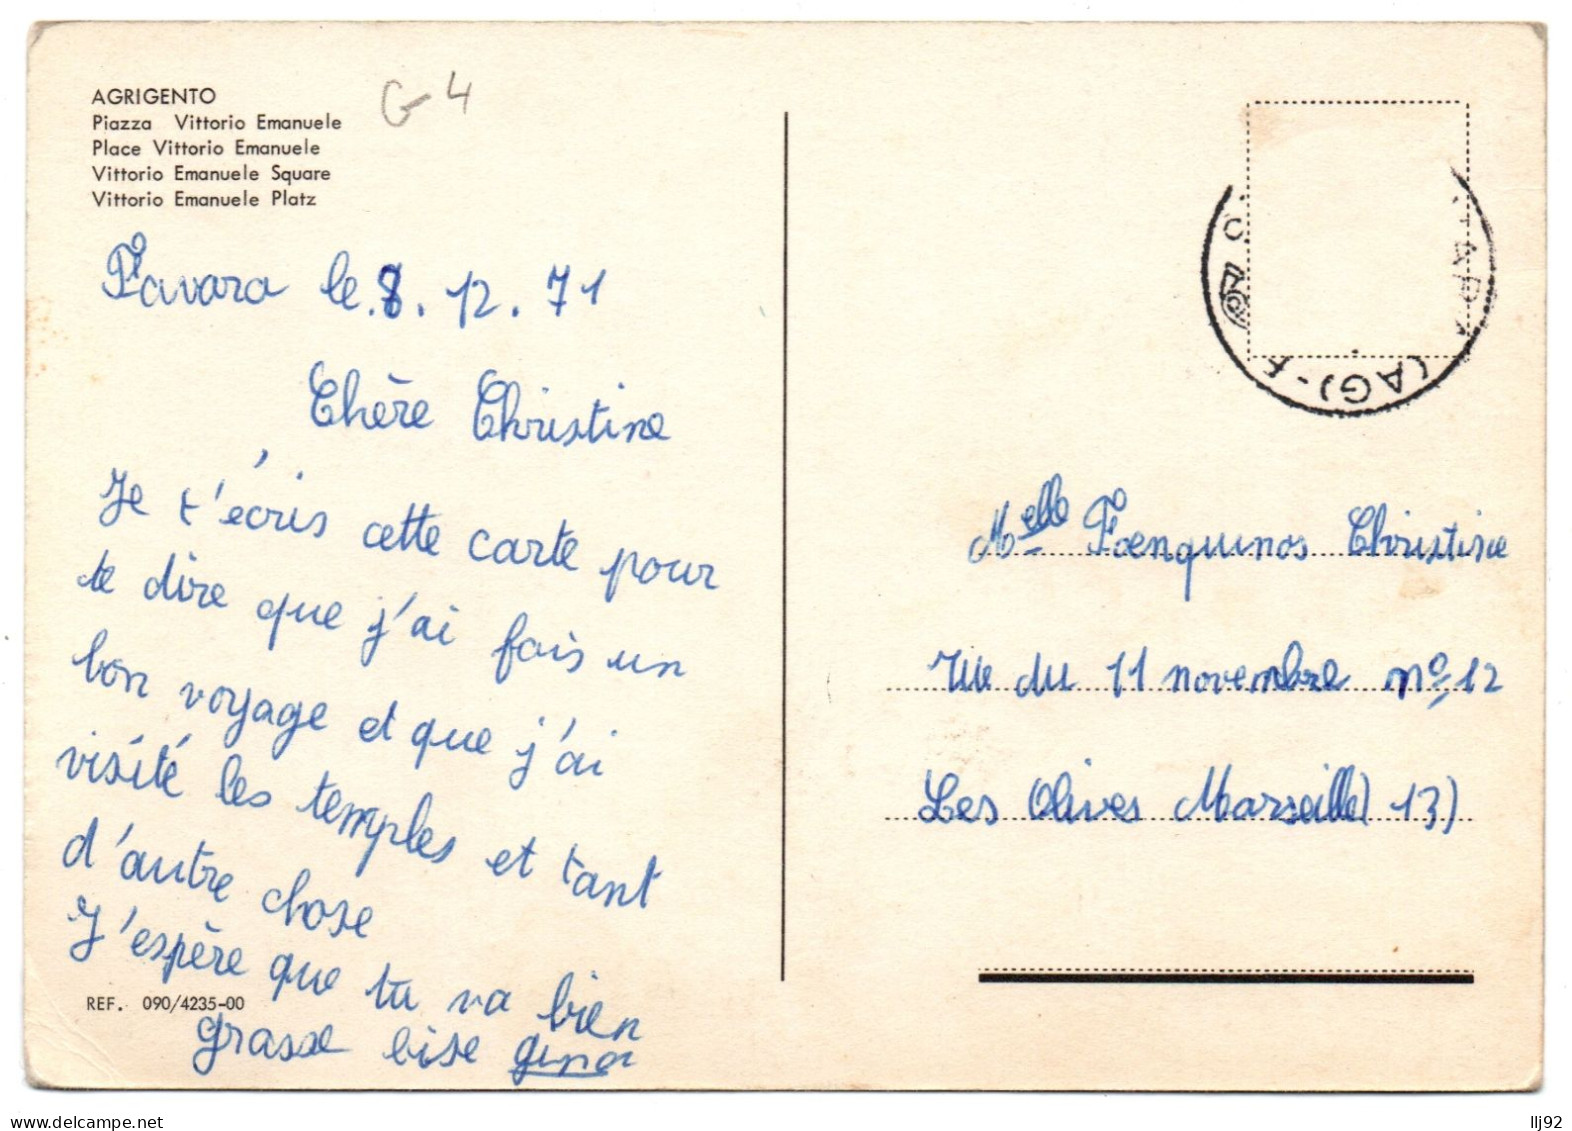 AGRIGENTO
Piazza Vittorio Emanuele
Place Vittorio Emanuele
Vittorio Emanuele Square
Vittorio Emanuele Platz
G-4
Favara le 8. 12. 71
Chère Christine
Je t'écris cette carte pour
te dire que j'ai fais un
bon voyage et que j'ai
visité les temples et tant
d'autre chose
J'espère que tu va bien
grasse bise gina
REF. 090/4235-00
(AG)
Melle Faenquinos Christine
rue du 11 novembre nº 12
Les Olives Marseille (13)
www.delcampe.net
llj92